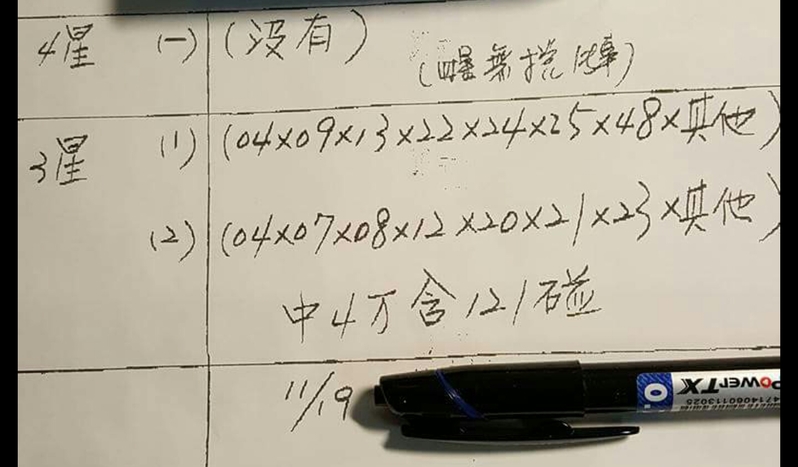 4星 (一) (没有)
3星 (1) (04×09×13×22×24×25×48×其他)
(2) (04×07×08×12×20×21×23×其他)
中4万含121碰
11/19
POWERTX
4714060113025
0.